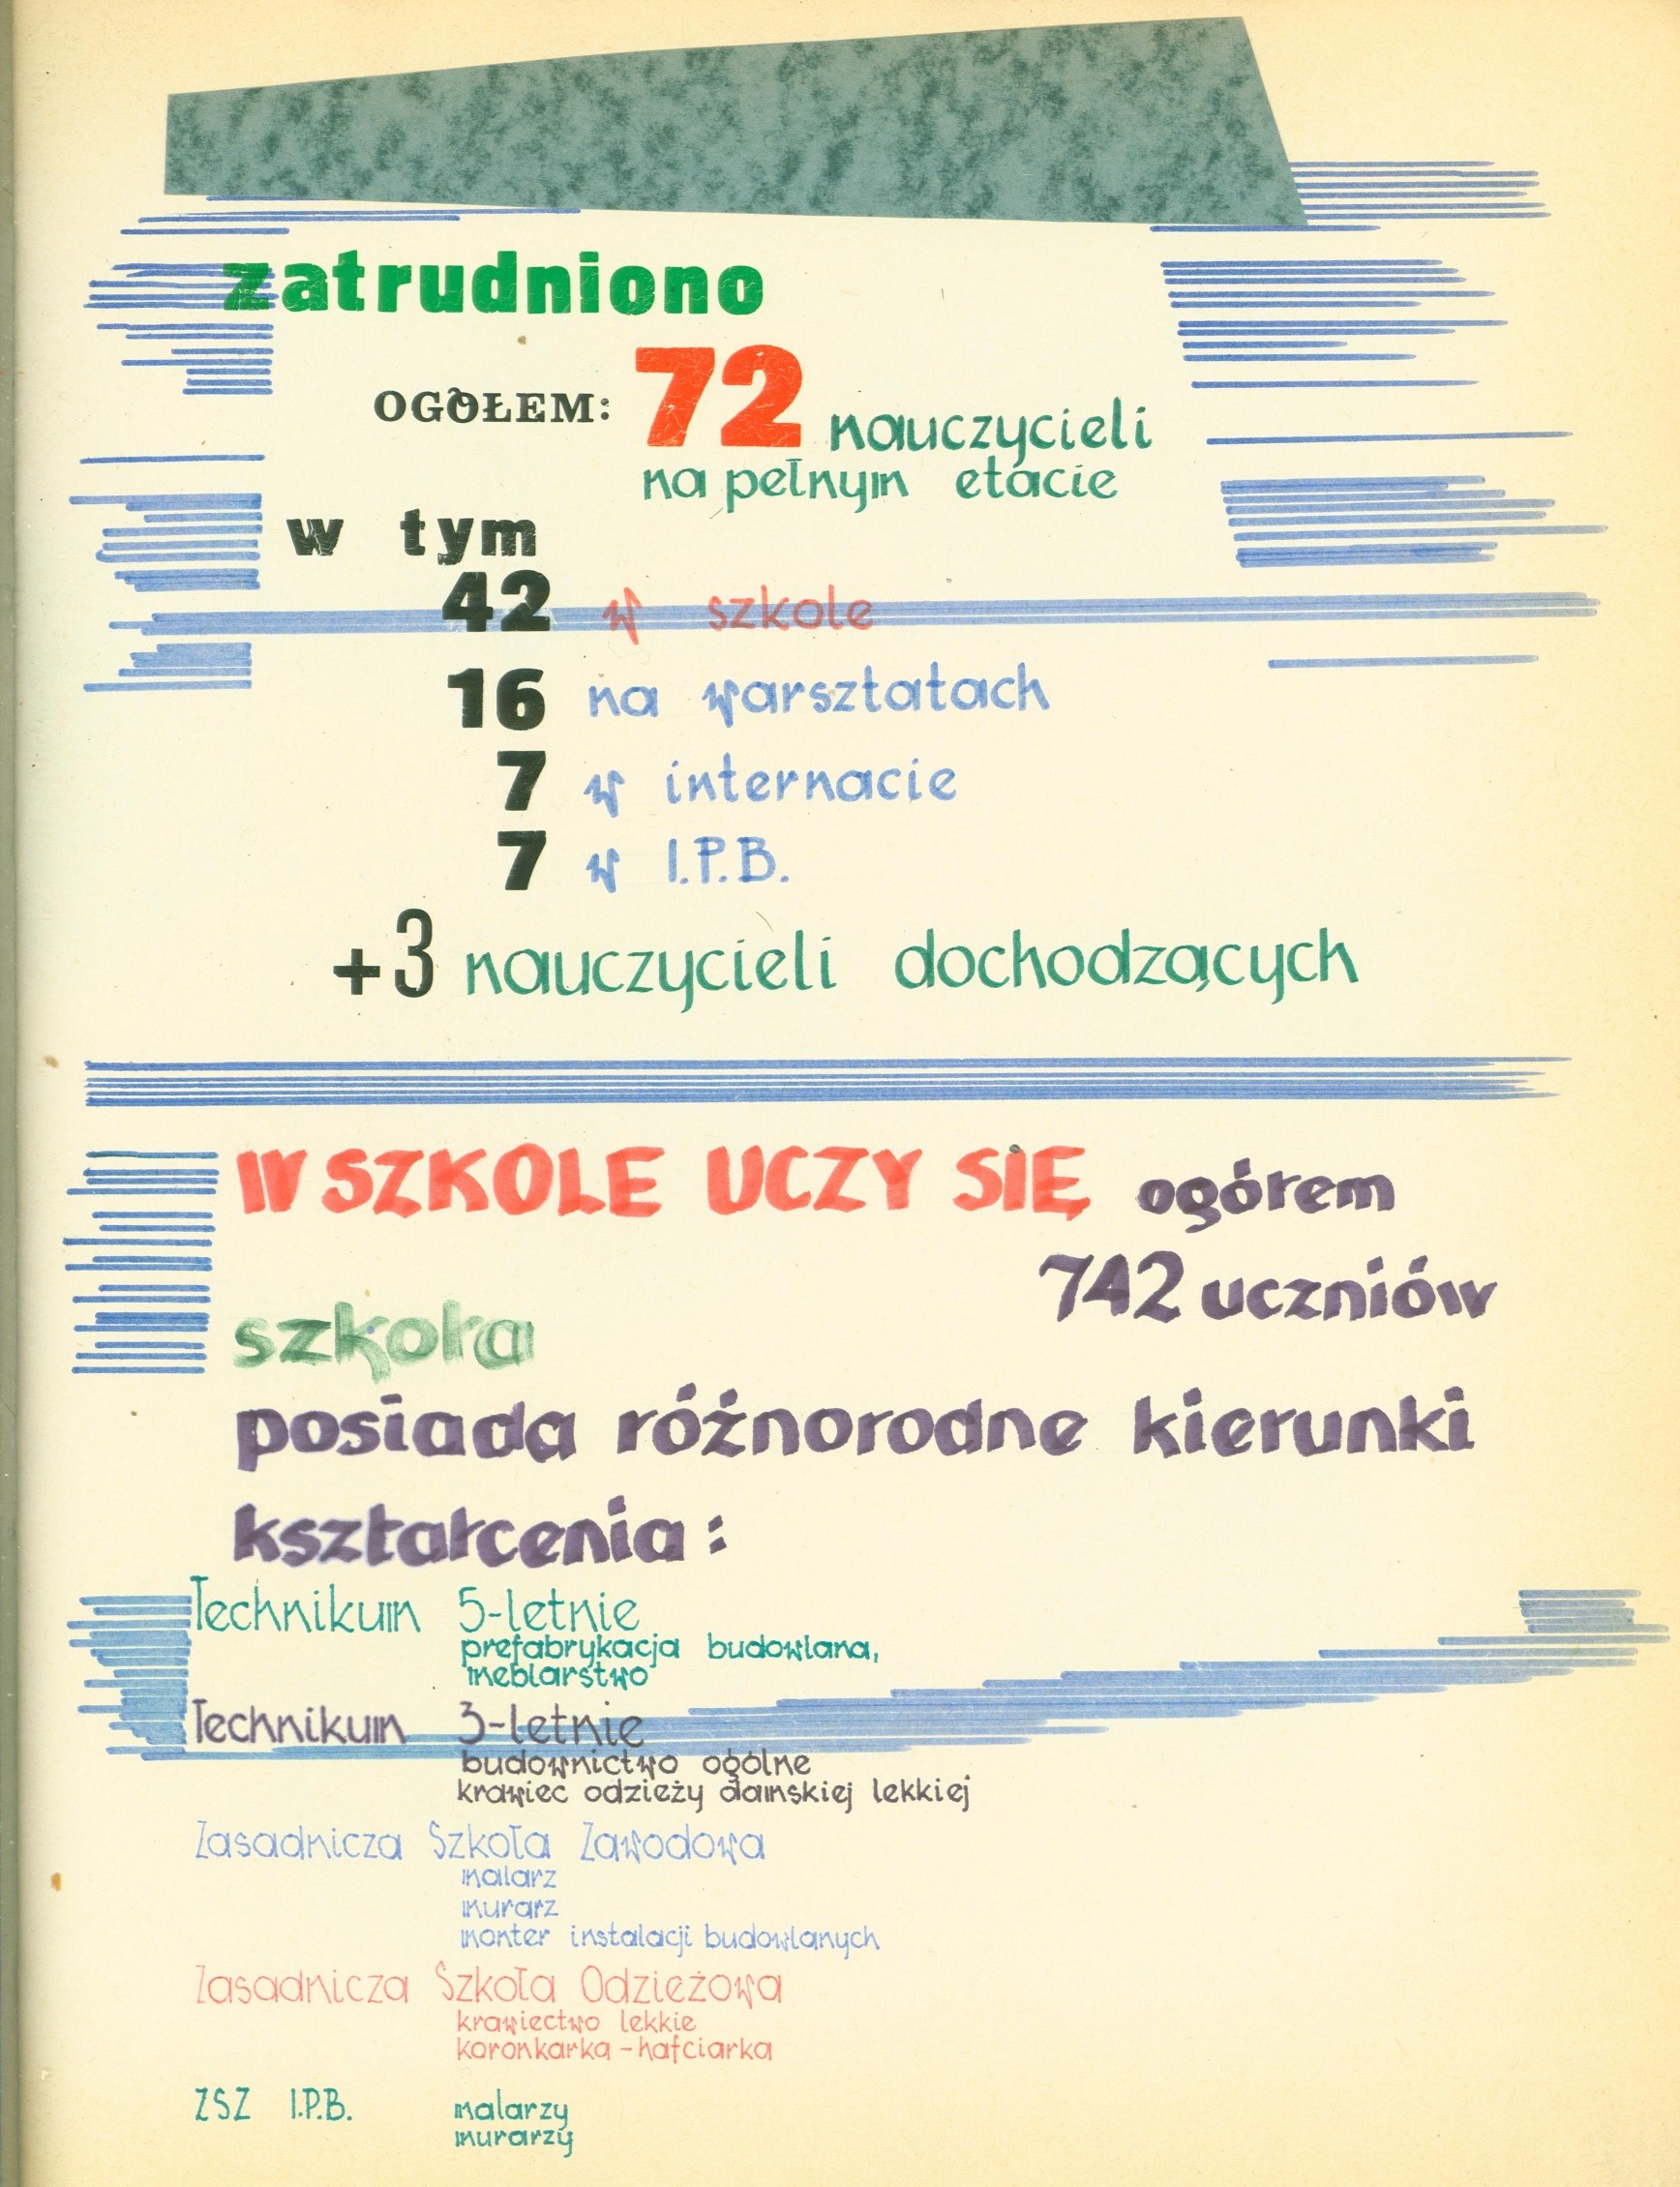 zatrudniono
OGÓŁEM: 72 nauczycieli
na pełnym etacie
w tym
42 w szkole
16 na warsztatach
7 w internacie
7 w I.P.B.
+3 nauczycieli dochodzących
W SZKOLE UCZY SIĘ ogółem
742 uczniów
szkoła
posiada różnorodne kierunki
kształcenia:
Technikum 5-letnie
prefabrykacja budowlana,
meblarstwo
Technikum 3-letnie
budownictwo ogólne
krawiec odzieży damskiej lekkiej
Zasadnicza Szkoła Zawodowa
malarz
murarz
monter instalacji budowlanych
Zasadnicza Szkoła Odzieżowa
krawiectwo lekkie
koronkarka-hafciarka
ZSZ I.P.B. malarzy
murarzy